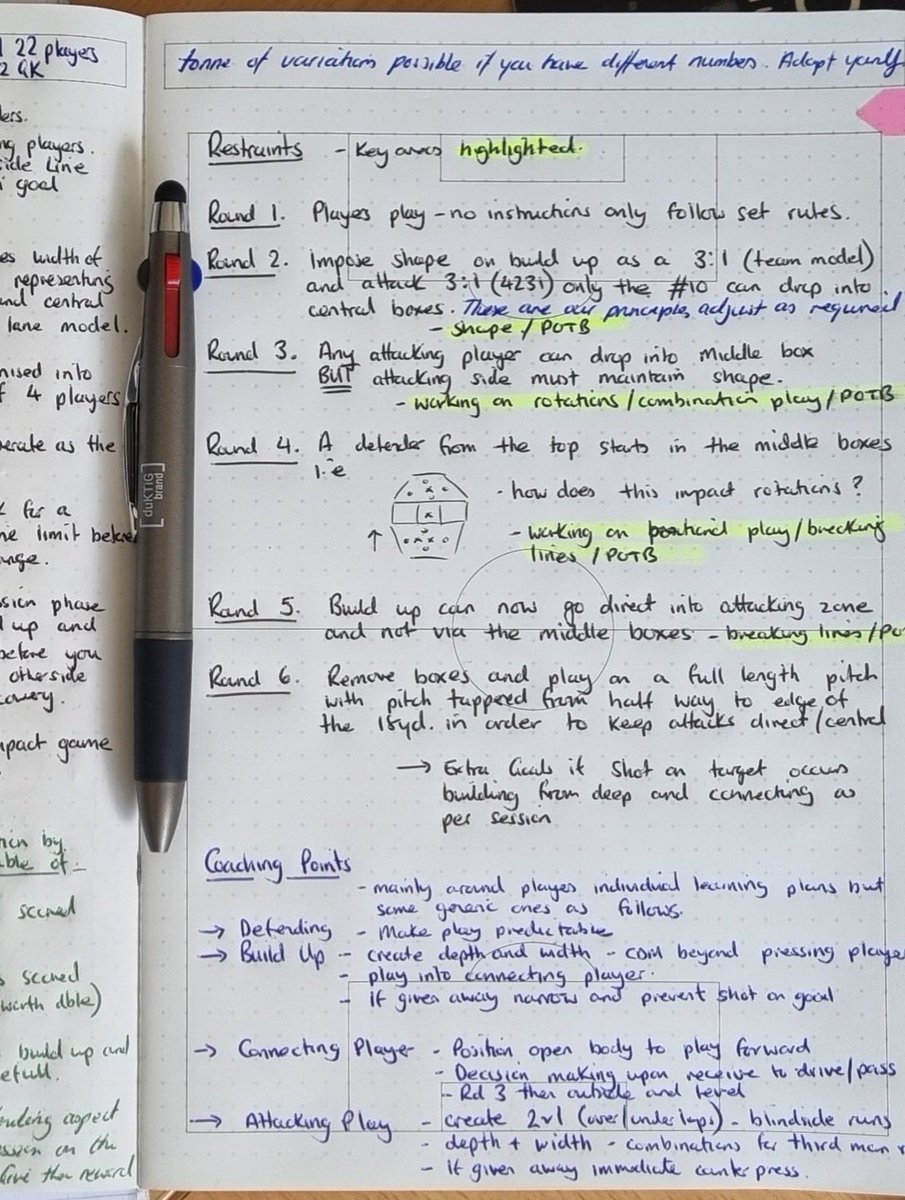 22 players
2 GK
ders.
ng players.
side Line
i goal
es width of
representing
and central
lane model.
nised into
f 4 players
erate as the
k for a
ne limit before
ange.
ssion phase
d up and
before you
otherside
covery.
mpact game
by
ble of -
scored
s scored
worth dble)
build up and
efull.
ending aspect
ession on the
Give then reward
[duKTIG brand]
tonne of variation possible if you have different numbers. Adapt
Restraints - Key areas highlighted.
Round 1. Players play - no instructions only follow set rules.
Round 2. Impose shape on build up as a 3:1 (team model)
and attack 3:1 (4231) only the #10 can drop into
central boxes. These are our principles, adjust as required
- shape / POTB
Round 3. Any attacking player can drop into middle box
BUT attacking side must maintain shape.
- working on rotations/combination play/POTB
Round 4. A defender from the top starts in the middle boxes
i.e
- how does this impact rotations?
- working on play/breaking
lines / POTB
Round 5. Build up can now go direct into attacking zone
and not via the middle boxes - breaking lines/PO
Round 6. Remove boxes and play on a full length pitch
with pitch tappered from half way to edge of
the 18yd. in order to keep attacks direct/central
→ Extra Goals if shot on target occurs
building from deep and connecting as
per session
Coaching Points
- mainly around players individual learning plans but
some generic ones as follows.
→ Defending - Make play predictable
→ Build Up - create depth and width - beyond pressing player
- play into connecting player.
- If given away narrow and prevent shot on goal
→ Connecting Player - Position open body to play forward
- Decision making upon receive to drive/pass
- Rd 3 then outside and level
→ Attacking Play - create 2v1 (over/underlaps) - blindside runs
- depth + width - combinations for third man r
- If given away immediate counter press.